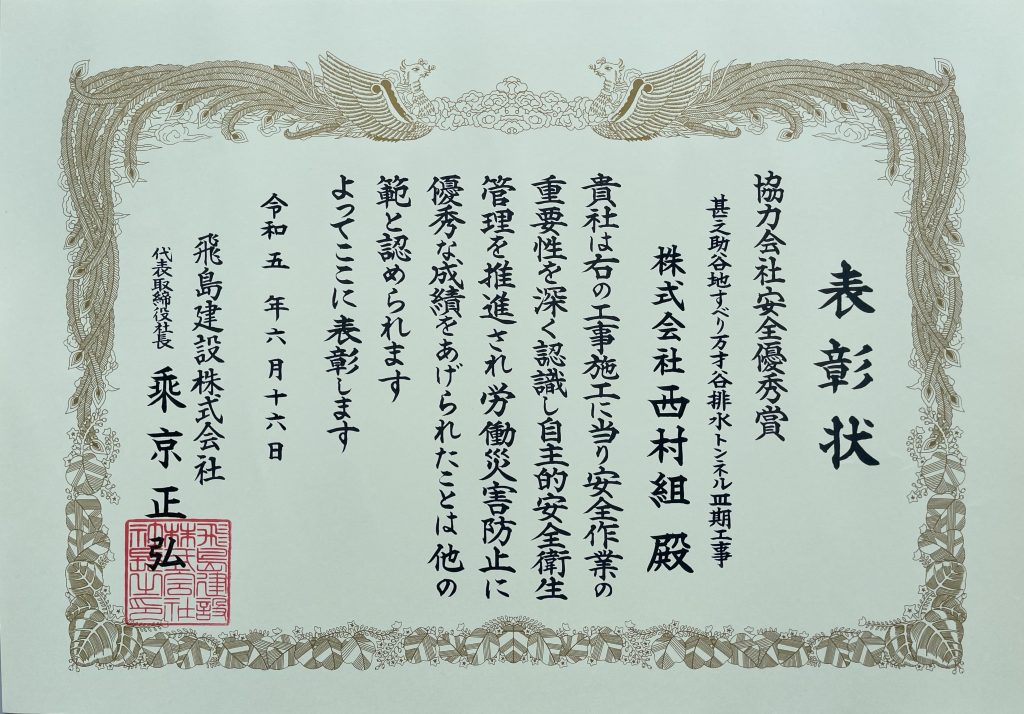 表彰状
協力会社安全優秀賞
甚之助谷地すべり万才谷排水トンネルⅢ期工事
株式会社西村組 殿
貴社は右の工事施工に当り安全作業の
重要性を深く認識し自主的安全衛生
管理を推進され労働災害防止に
優秀な成績をあげられたことは他の
範と認められます
よってここに表彰します
令和五年六月十六日
飛島建設株式会社
代表取締役社長 乘京正弘
飛島建設
株式会社